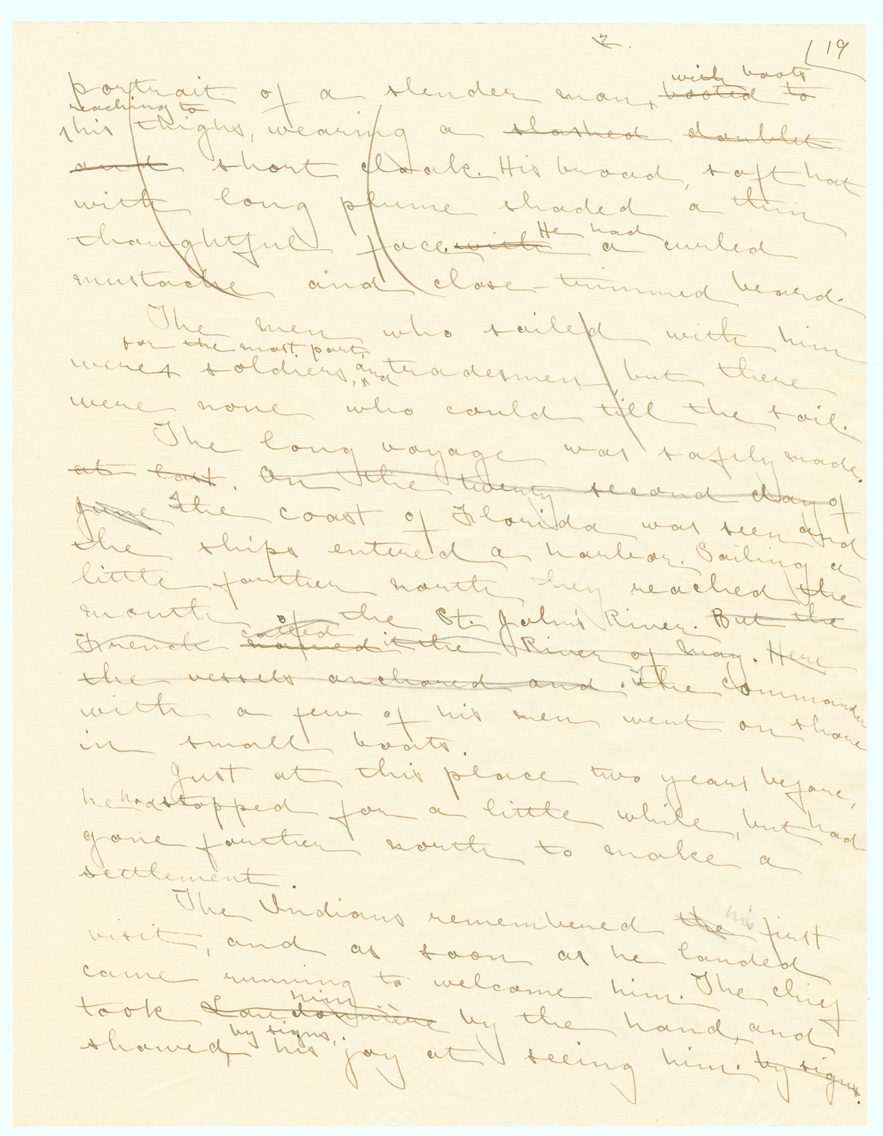 2.
19
with boots
portrait of a slender man, booted to
reaching to
his thighs, wearing a slashed doublet
and short cloak. His broad, soft hat
with long plume shaded a thin
He had
thoughtful face with a curled
mustache and close-trimmed beard.
The men who sailed with him
for the most part,
were soldiers, and tradesmen, but there
were none who could till the soil.
The long voyage was safely made.
at last. On the twenty second day of
June The coast of Florida was seen and
the ships entered a harbor. Sailing a
little farther north they reached the
mouth of the St. John's River. But the
called
French named it the River of May. Here
the vessels anchored and. The commander
with a few of his men went on shore
in small boats.
Just at this place two years before,
he had stopped for a little while, but had
gone farther north to make a
settlement.
The Indians remembered the his first
visit, and as soon as he landed
came running to welcome him. The chief
him
took Laudonnière by the hand, and
by signs,
showed his joy at seeing him. by signs.